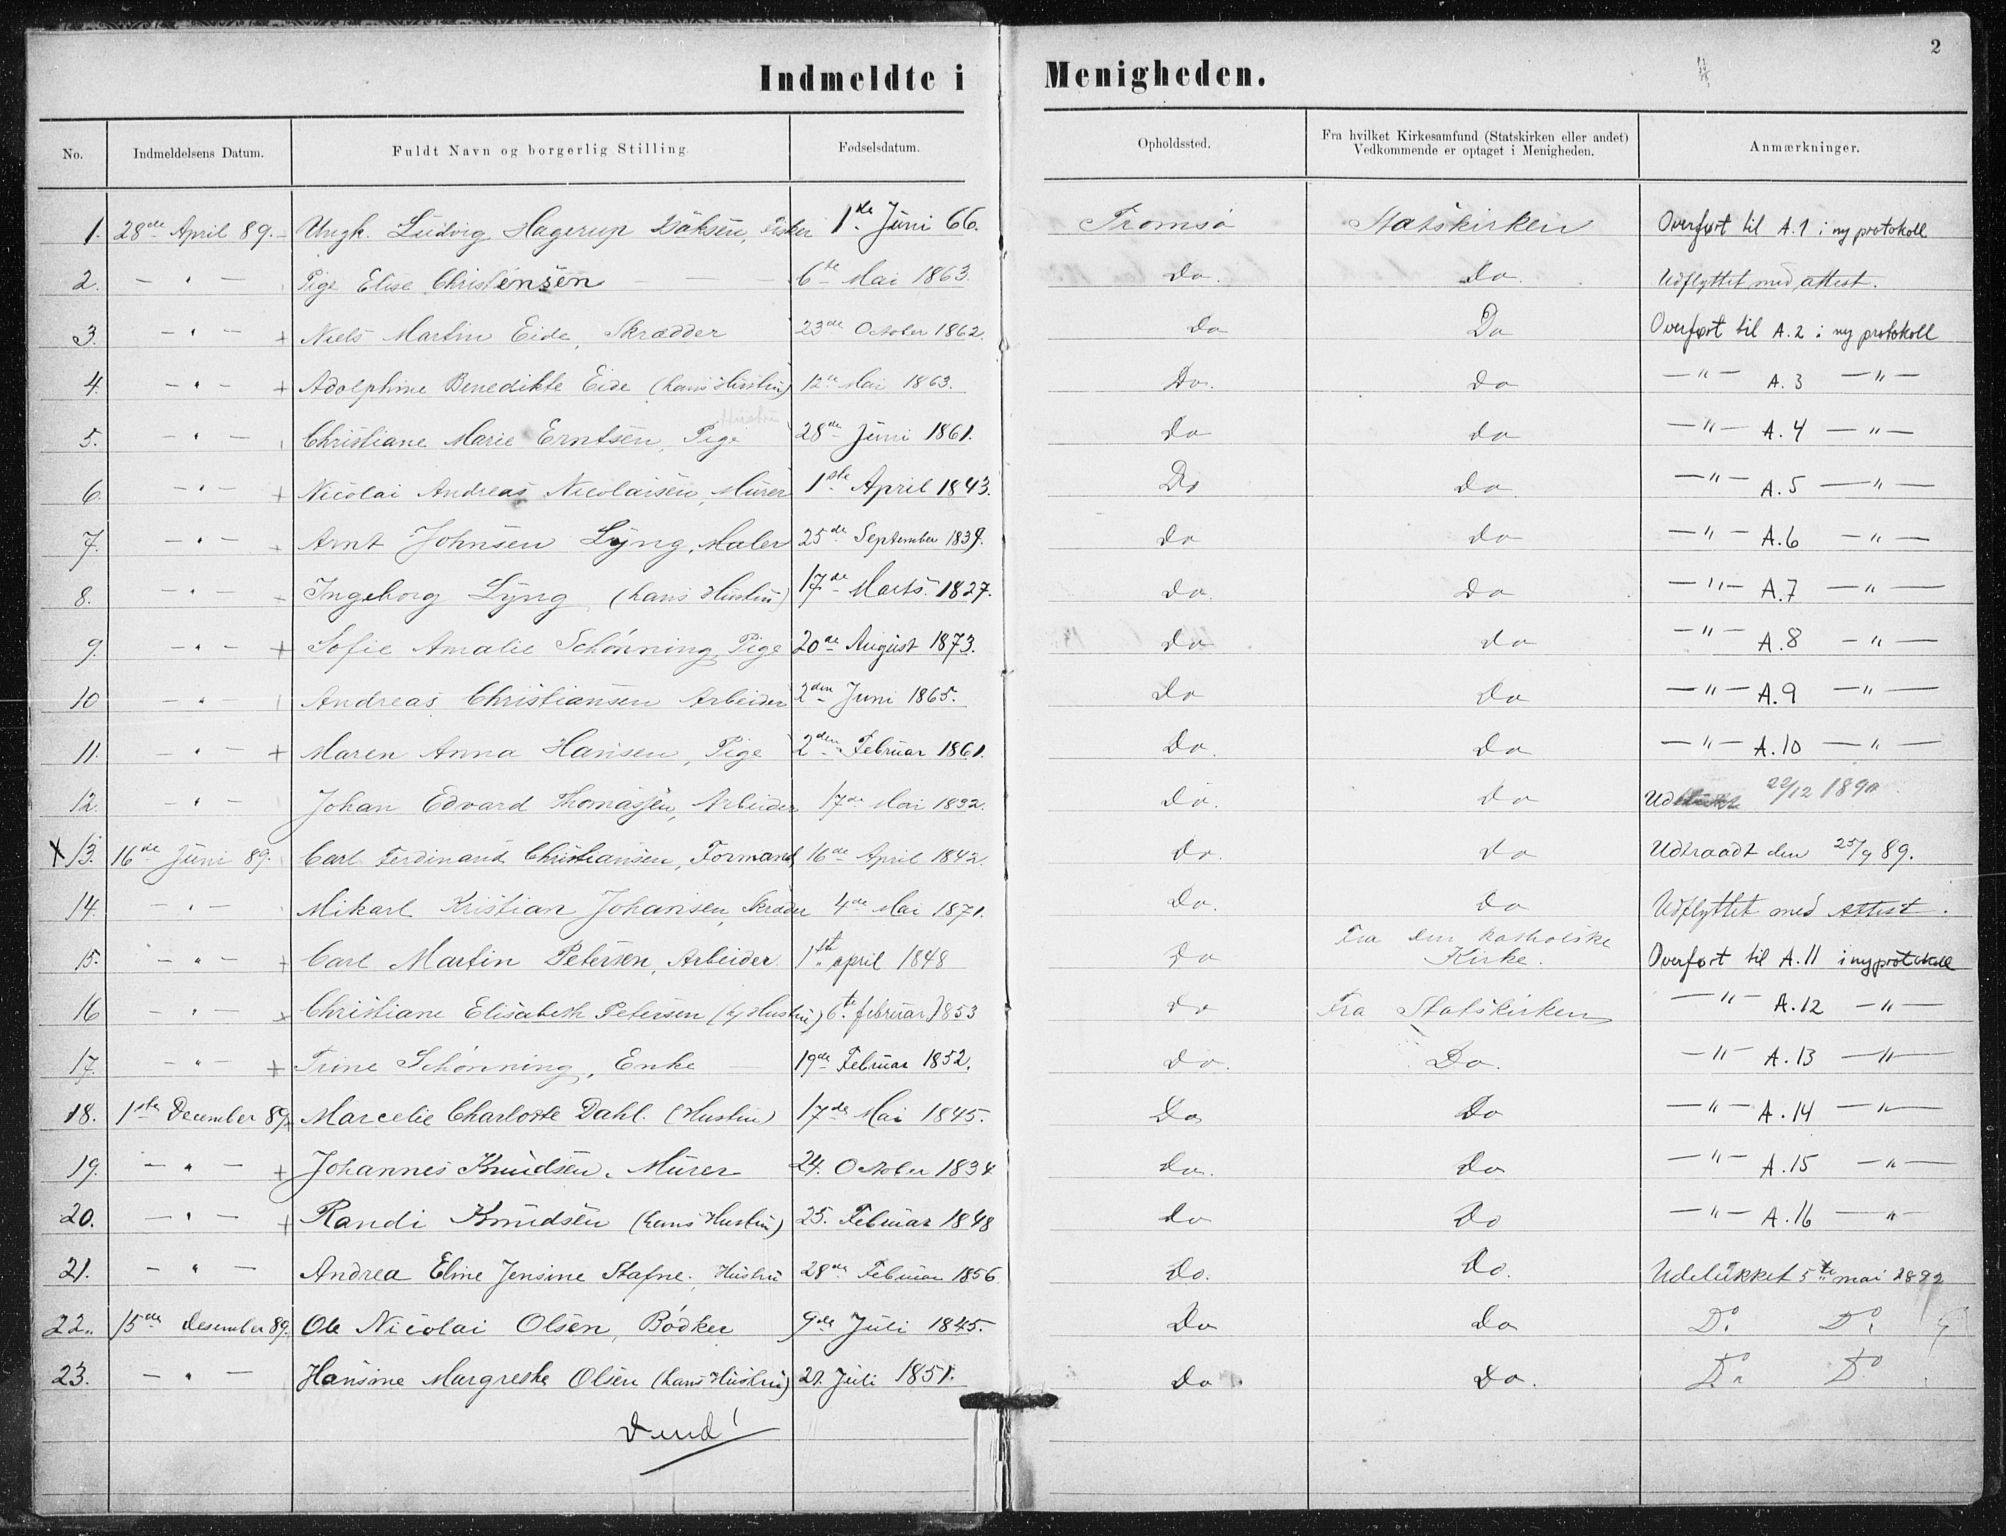 2
Indmeldte i Menigheden.
No. Indmeldelsens Datum. Fuldt Navn og borgerlig Stilling. Fødselsdatum. Opholdssted. Fra hvilket Kirkesamfund (Statskirken eller andet) Vedkommende er optaget i Menigheden. Anmærkninger.
1. 28de April 89. Ungk. Ludvig Hagerup 1de Juni 66. Tromsø Statskirken Overført til A.1 i ny protokoll
2. — " — Pige Elise Christensen — 6te Mai 1863. Do. Do. Udflyttet med attest.
3. — " — + Niels Martin Eide, Skrædder 23de October 1862. Do Do Overført til A.2 i ny protokoll
4. — " — + Adolphine Benedikte Eide (hans Hustru) 12te Mai 1863. Do. Do — " — A.3 — " —
5. — " — Christiane Marie Erntsen, Pige 28de Juni 1861. Do Do — " — A.4 — " —
6. — " — + Nicolai Andreas Nicolaisen, Murer 1ste April 1843. Do Do. — " — A.5 — " —
7. — " — + Arnt Johnsen Lyng, Maler 25de September 1839. Do Do — " — A.6 — " —
8. — " — Ingeborg Lyng (hans Hustru) 17de Marts 1827. Do. Do — " — A.7 — " —
9. — " — + Sofie Amalie Schønning, Pige 20de August 1873. Do Do — " — A.8 — " —
10 — " — Andreas Christiansen Arbeider 2den Juni 1865. Do Do — " — A.9 — " —
11. — " — + Maren Anna Hansen, Pige 2den Februar 1861. Do. Do — " — A.10 — " —
12. — " — Johan Edvard Thomassen, Arbeider 17de Mai 1832. Do. Do 29/12 1890
x 13. 16de Juni 89. Carl Ferdinand Christiansen, Formand 16de April 1842. Do. Do Udtraadt den 25/9 89.
14. — " — Mikael Kristian Johansen, Skræder 4de Mai 1871. Do. Do Udflyttet med Attest.
15. — " — + Carl Martin Petersen, Arbeider 1ste april 1848 Do Fra den katholske Kirke. Overført til A.11 i ny protokoll
16 — " — x Christiane Elisabeth Petersen 6te februar 1853 Do Fra Statskirken — " — A.12 — " —
17. — " — + Trine Schønning, Enke — 19de Februar 1852. Do. Do. — " — A.13 — " —
18. 1ste December 89. Marcelie Charlotte Dahl. (Hustru) 17de Mai 1845. Do Do — " — A.14 — " —
19. — " — + Johannes Knudsen, Murer 24. October 1834 Do. Do — " — A.15 — " —
20. — " — + Randi Knudsen (hans Hustru) 25. Februar 1848 Do Do — " — A.16 — " —
21. — " — Andrea Eline Jensine Stafne, Hustru 28de Februar 1856. Do. Do. Udelukket 5te mai 1892
22. 15de desember 89. Ole Nicolai Olsen, Bødker 9de Juli 1845. Do Do Do. Do.
23. — " — Hansine Margrethe Olsen (hans Hustru) 21. Juli 1851. Do Do. Do. Do
Vend!